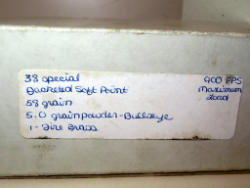 38 special
Jacketed Soft Point
58 grain
5.0 grain powder-Bullseye
1- Fire Brass
900 FPS
Maximum
Load